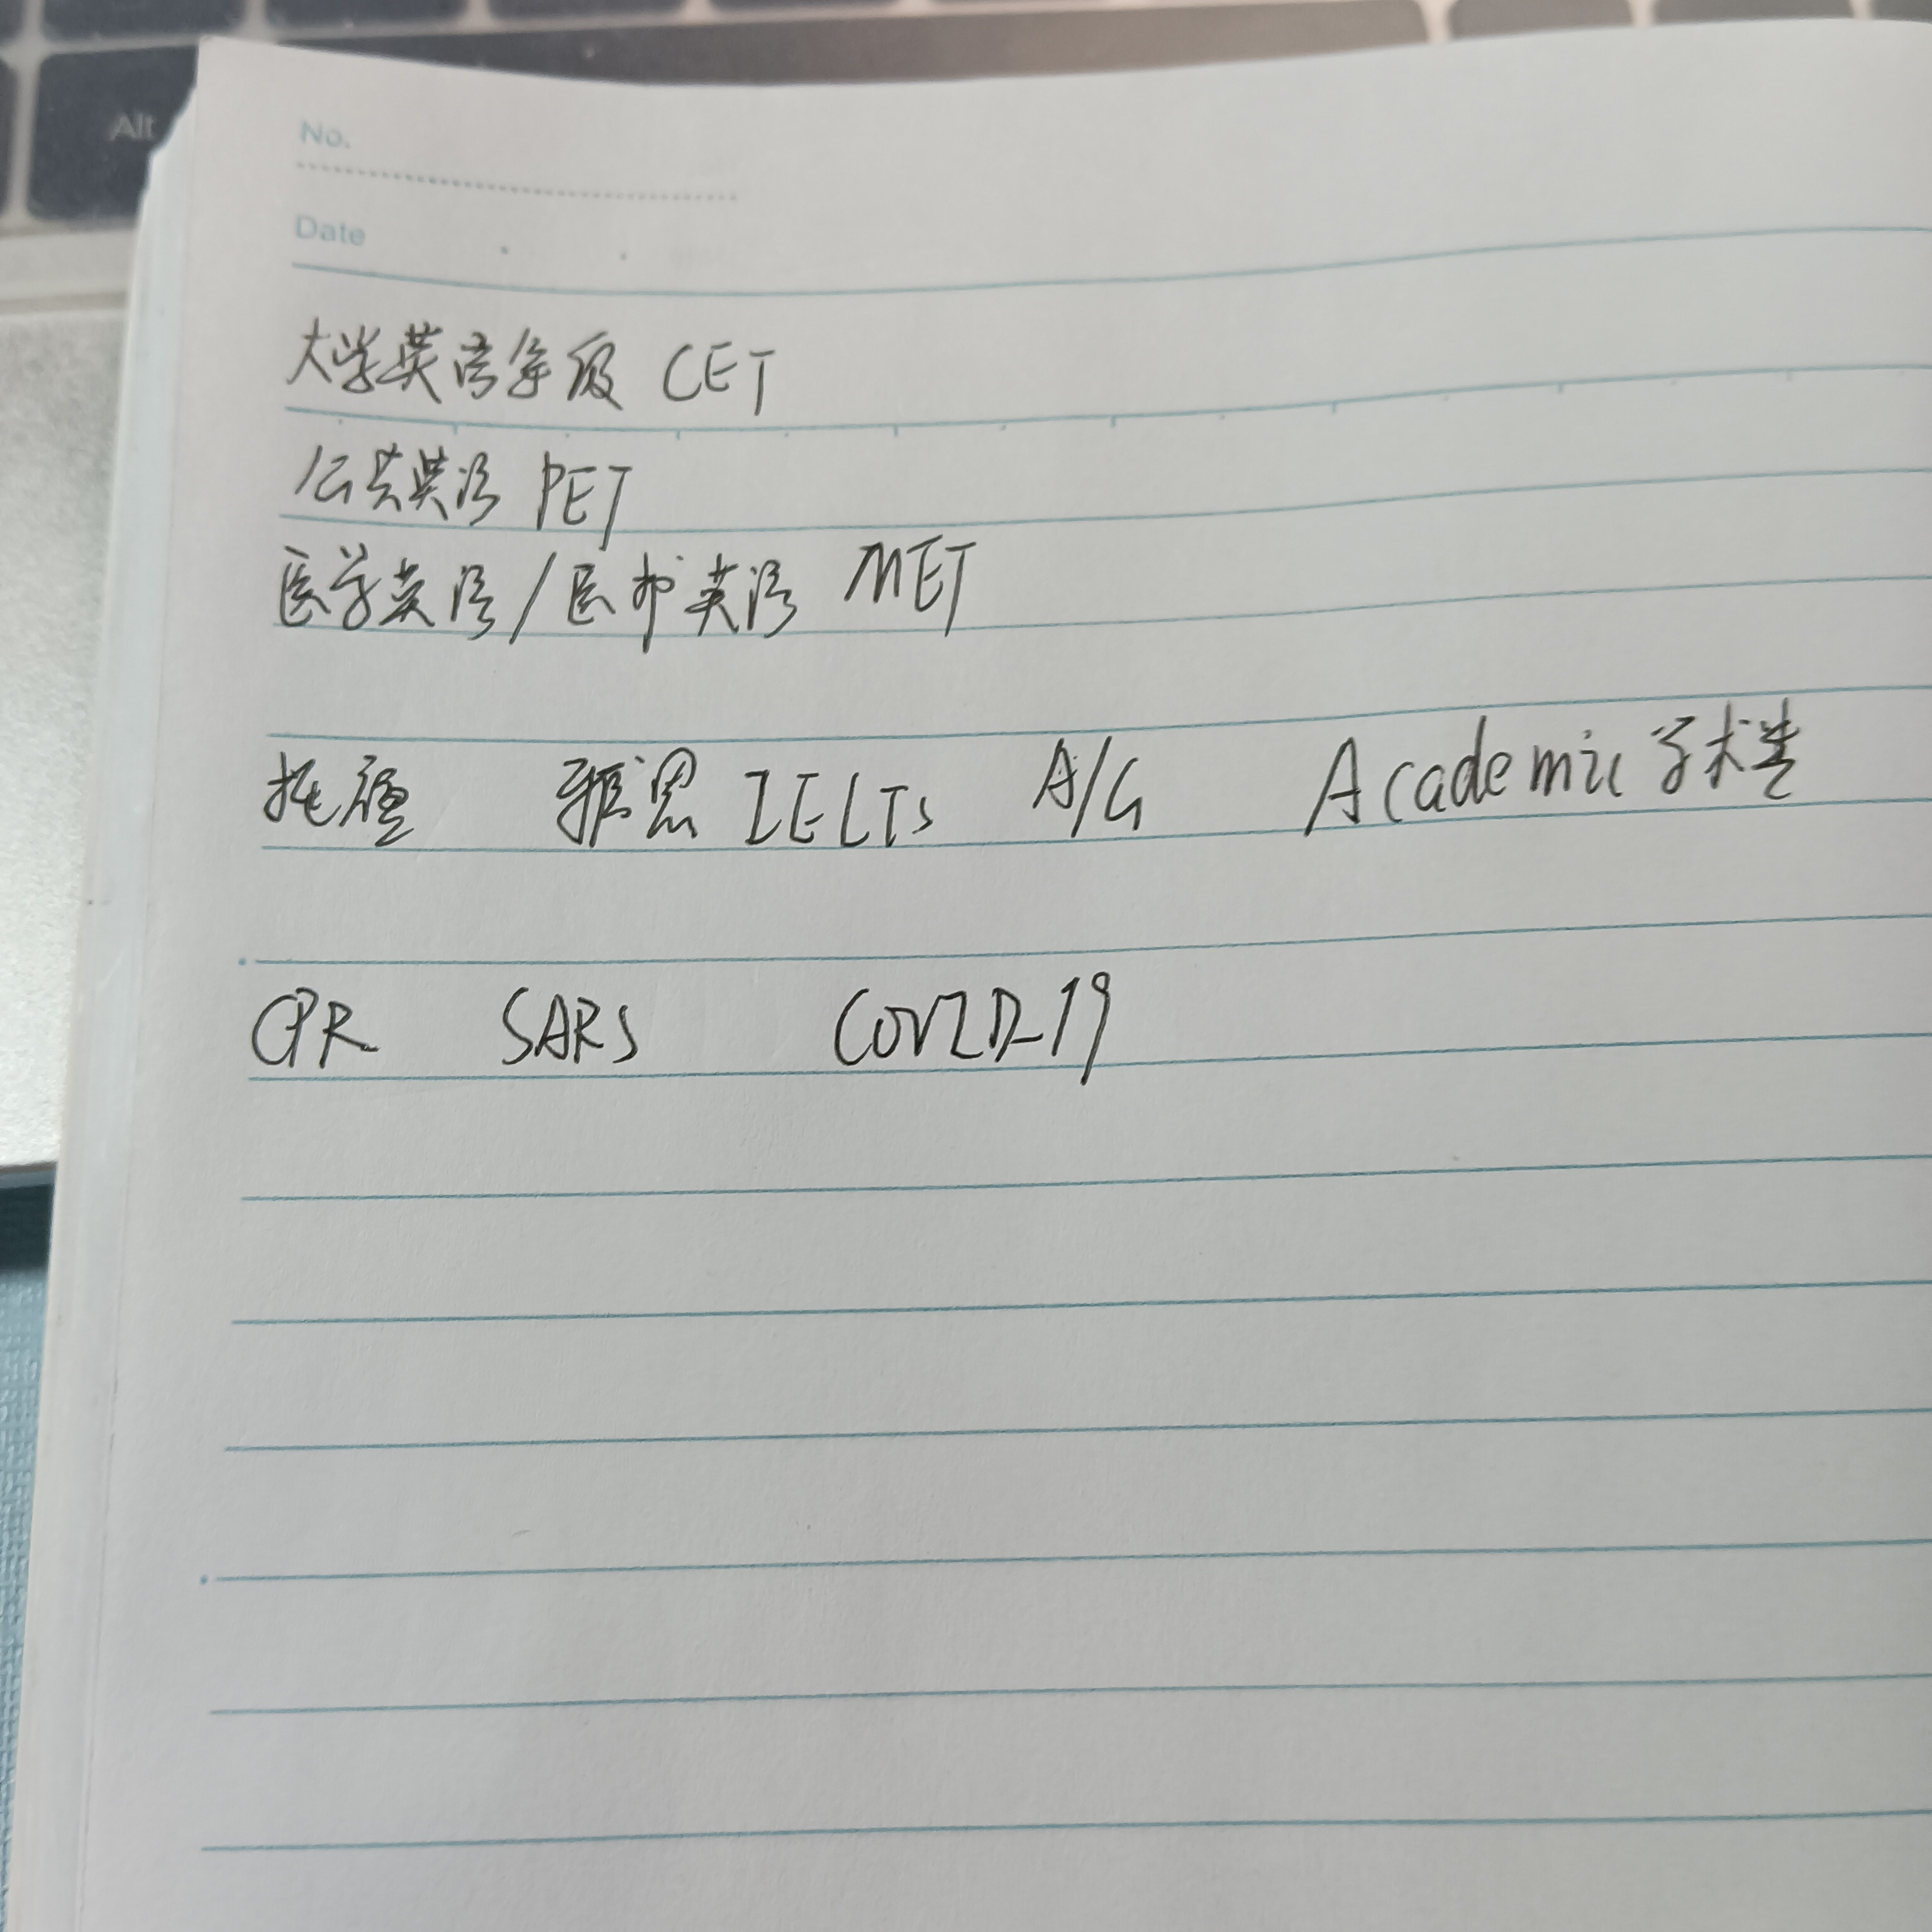 Alt
No.
Date
大学英语等级 CET
公共英语 PET
医学英语/医护英语 MET
托福 雅思 IELTS A/G Academic 学术类
CPR SARS COVID-19